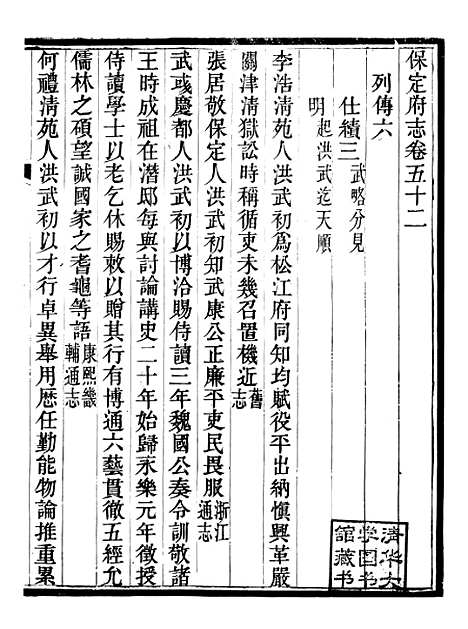 保定府志卷五十二
列傳六
仕績三 武略分見
明 起洪武迄天順
李浩清苑人洪武初爲松江府同知均賦役平出納愼興革嚴
關津清獄訟時稱循吏未幾召置機近 舊志
張居敬保定人洪武初知武康公正廉平吏民畏服 浙江通志
武彧慶都人洪武初以博洽賜侍讀三年魏國公奏令訓敬諸
王時成祖在潛邸每與討論講史二十年始歸永樂元年徵授
侍讀學士以老乞休賜敕以贈其行有博通六藝貫徹五經允
儒林之碩望誠國家之耆龜等語 康熙畿輔通志
何禮清苑人洪武初以才行卓異舉用歷任勤能物論推重累
清华大
学图书
館藏书